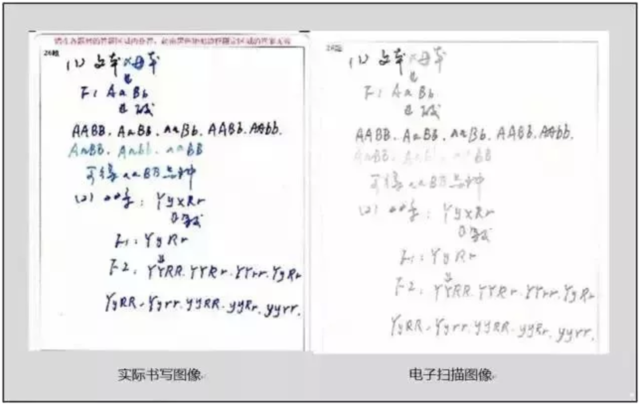 请在各题目的答题区域内作答，超出黑色矩形边框限定区域的答案无效
(1) 父本×母本
F1 AaBb
AABB. AaBb. aaBb. AABb. AAbb.
AaBB. Aabb. aaBB
(2) YyxRr
F1: YyRr
F2: YYRR. YYRr. YYrr. YyRr
YyRR. Yyrr. yyRR. yyRr. yyrr.
(1) 父本×母本
F1 AaBb
AABB. AaBb. aaBb. AABb. AAbb.
AaBB. Aabb. aaBB
(2) YyxRr
F1: YyRr
F2: YYRR. YYRr. YYrr. YyRr
YyRR. Yyrr. yyRR. yyRr. yyrr.
实际书写图像
电子扫描图像